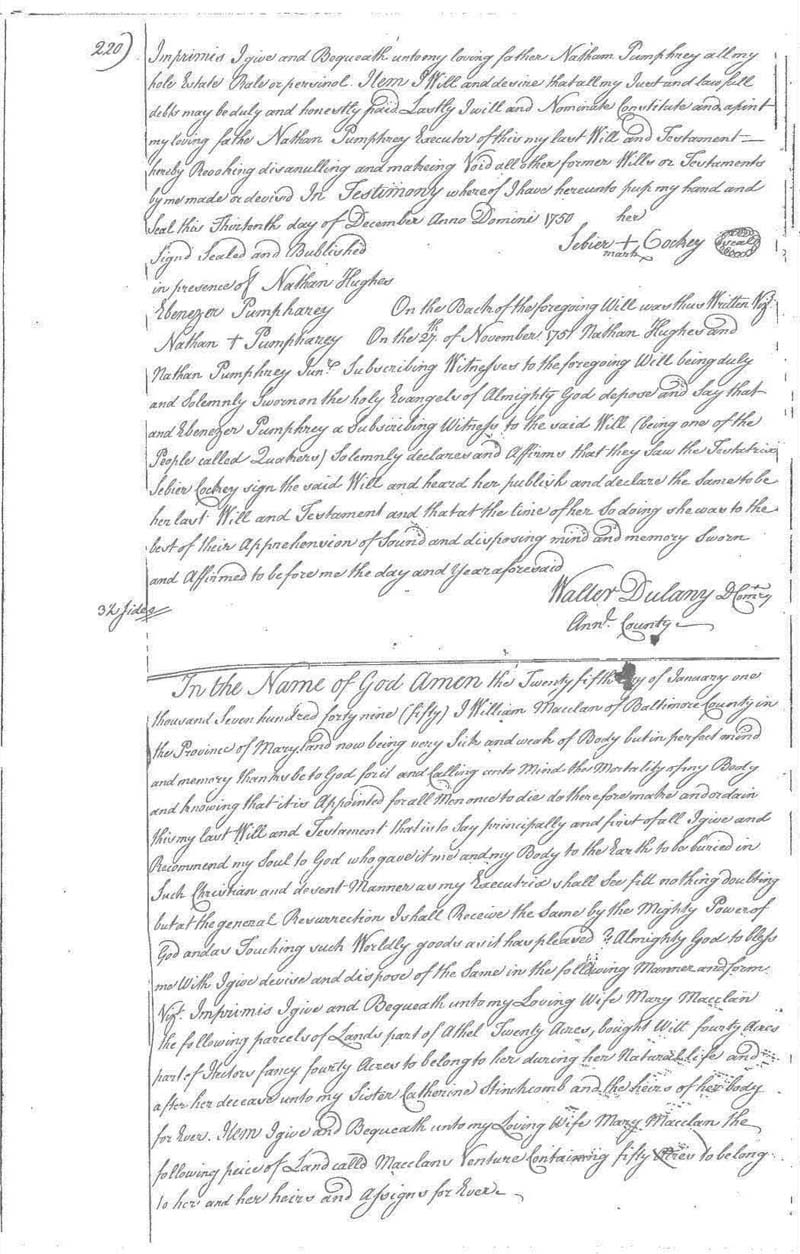 220)
Imprimis I give and Bequeath unto my loving father Nathan Pumphrey all my
hole Estate Rale or persinol. Item I Will and desire that all my Just and lawfull
debts may be duly and honestly paid Lastly I will and Nominate Constitute and apint
my loving fathe Nathan Pumphrey Executor of this my last Will and Testament
hereby Revoking disanulling and makeing Void all other former Wills or Testaments
by me made or devis'd In Testimony whereof I have hereunto put my hand and
Seal this Thirtenth day of December Anno Domini 1750
her
Sebier + Cockey Seal
mark
Signd Sealed and Published
in presence of Nathan Hughes
Ebenezer Pumpharey On the Back of the foregoing Will was thus Written Vizt.
Nathan + Pumpharey On the 27th. of November 1751 Nathan Hughes and
Nathan Pumphrey Junr. Subscribing Witnesses to the foregoing Will being duly
and Solemnly Sworn on the holy Evangels of Almighty God depose and Say that
and Ebenezer Pumphrey a Subscribing Witness to the said Will (being one of the
People called Quakers) Solemnly declares and Affirms that they Saw the Testatrix
Sebier Cockey sign the said Will and heard her publish and declare the same to be
her last Will and Testament and that at the time of her So doing she was to the
best of their Apprehension of Sound and disposing mind and memory Sworn
and Affirmed to before me the day and Year aforesaid
Walter Dulany D Comry
Annl. County
32 Sides
In the Name of God Amen the Twenty fifth day of January one
thousand Seven hundred forty nine (fifty) I William Macclan of Baltimore County in
the Province of Maryland now being very Sick and weak of Body but in perfect mind
and memory thanks be to God for it and Calling unto Mind the Mortality of my Body
and knowing that it is Appointed for all Men once to die do therefore make and ordain
this my last Will and Testament that is to Say principally and first of all I give and
Recommend my Soul to God who gave it me and my Body to the Earth to be buried in
Such Christian and desent Manner as my Executrix shall See fill nothing doubting
but at the general Resurrection I shall Receive the Same by the Mighty Power of
God and as Touching such Worldly goods as it has pleased Almighty God to bless
me With I give devise and dispose of the Same in the following Manner and form
Vizt. Imprimis I give and Bequeath unto my Loving Wife Mary Macclan
the following parcels of Lands part of Athel Twenty Acres, bought Witt fourty Acres
part of Hectors fancy fourty Acres to belong to her during her Natural life and
after her decease unto my Sister Catherine Stinchcomb and the heirs of her body
for Ever. Item I give and Bequeath unto my Loving Wife Mary Macclan the
following peice of Land calld Macclans Venture Containing fifty Acres to belong
to her and her heirs and Assigns for Ever